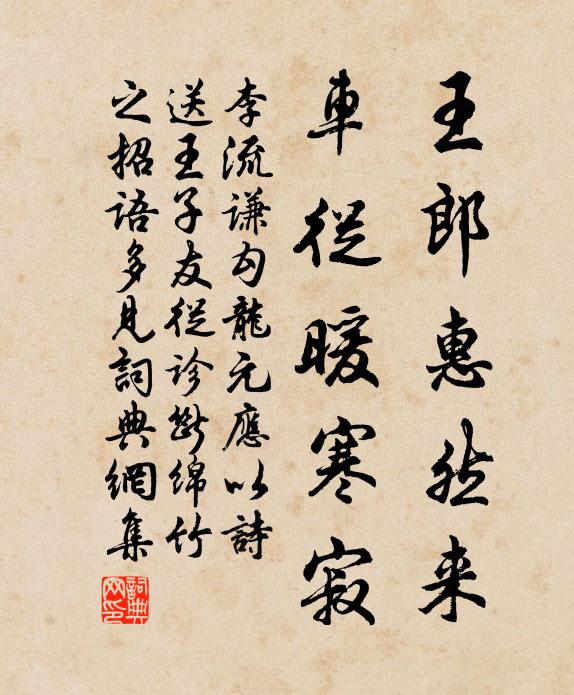 王郎惠然来
車從暖寒寂
李流謙勾龍元應以詩
送王子友從診斷綿竹
之招語多見詞典網集
詞典網印